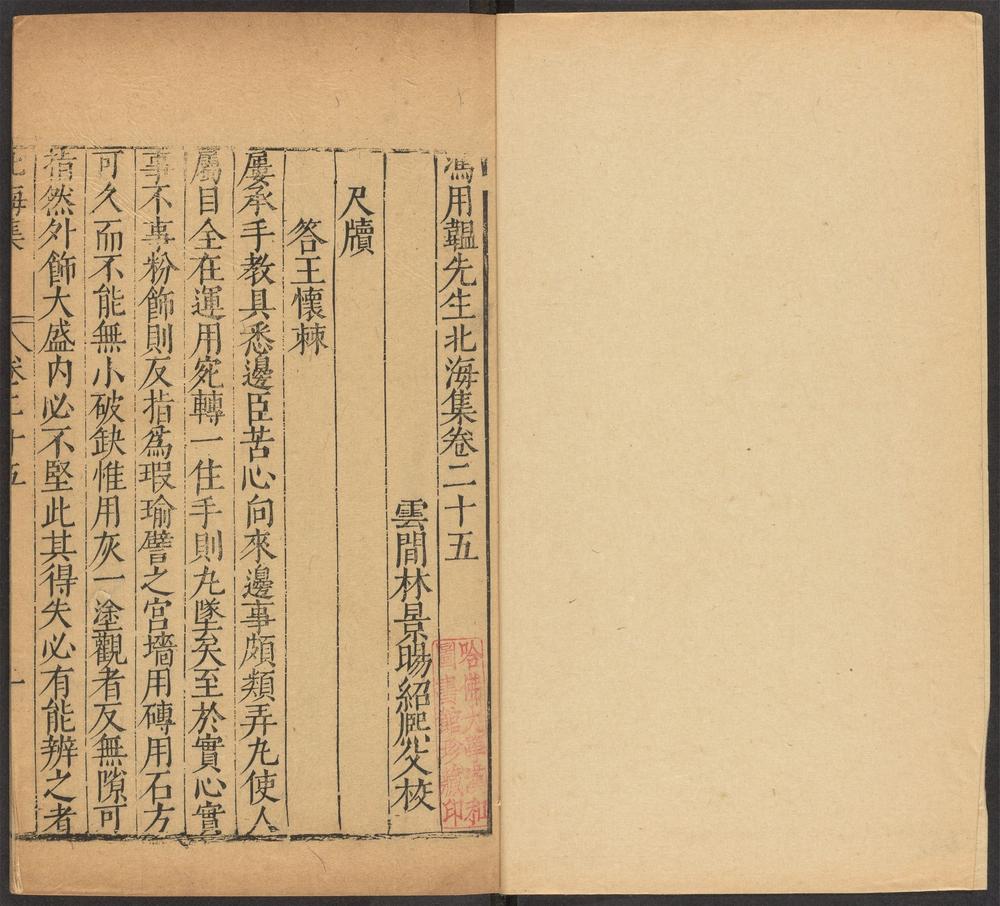 馮用韞先生北海集卷二十五
雲間林景暘紹熙父校
尺牘
答王懷棘
屢承手教具悉邊臣苦心向來邊事頗類弄丸使人
屬目全在運用宛轉一住手則丸墜矣至於實心實
事不事粉飾則反指為瑕瑜譬之宮墻用磚用石方
可久而不能無小破缺惟用灰一塗觀者反無隙可
指然外飾大盛内必不堅此其得失必有能辨之者
北海集 卷二十五 一
哈佛大學漢和
圖書館珍藏印